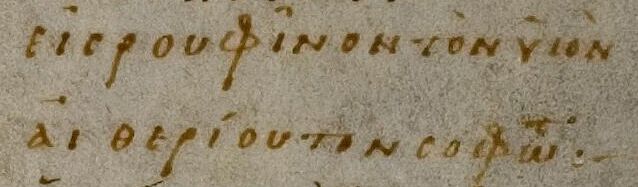 εἰς ρουφῖνον τὸν ὑιὸν
αἰθερίου τὸν σοφώτ:-